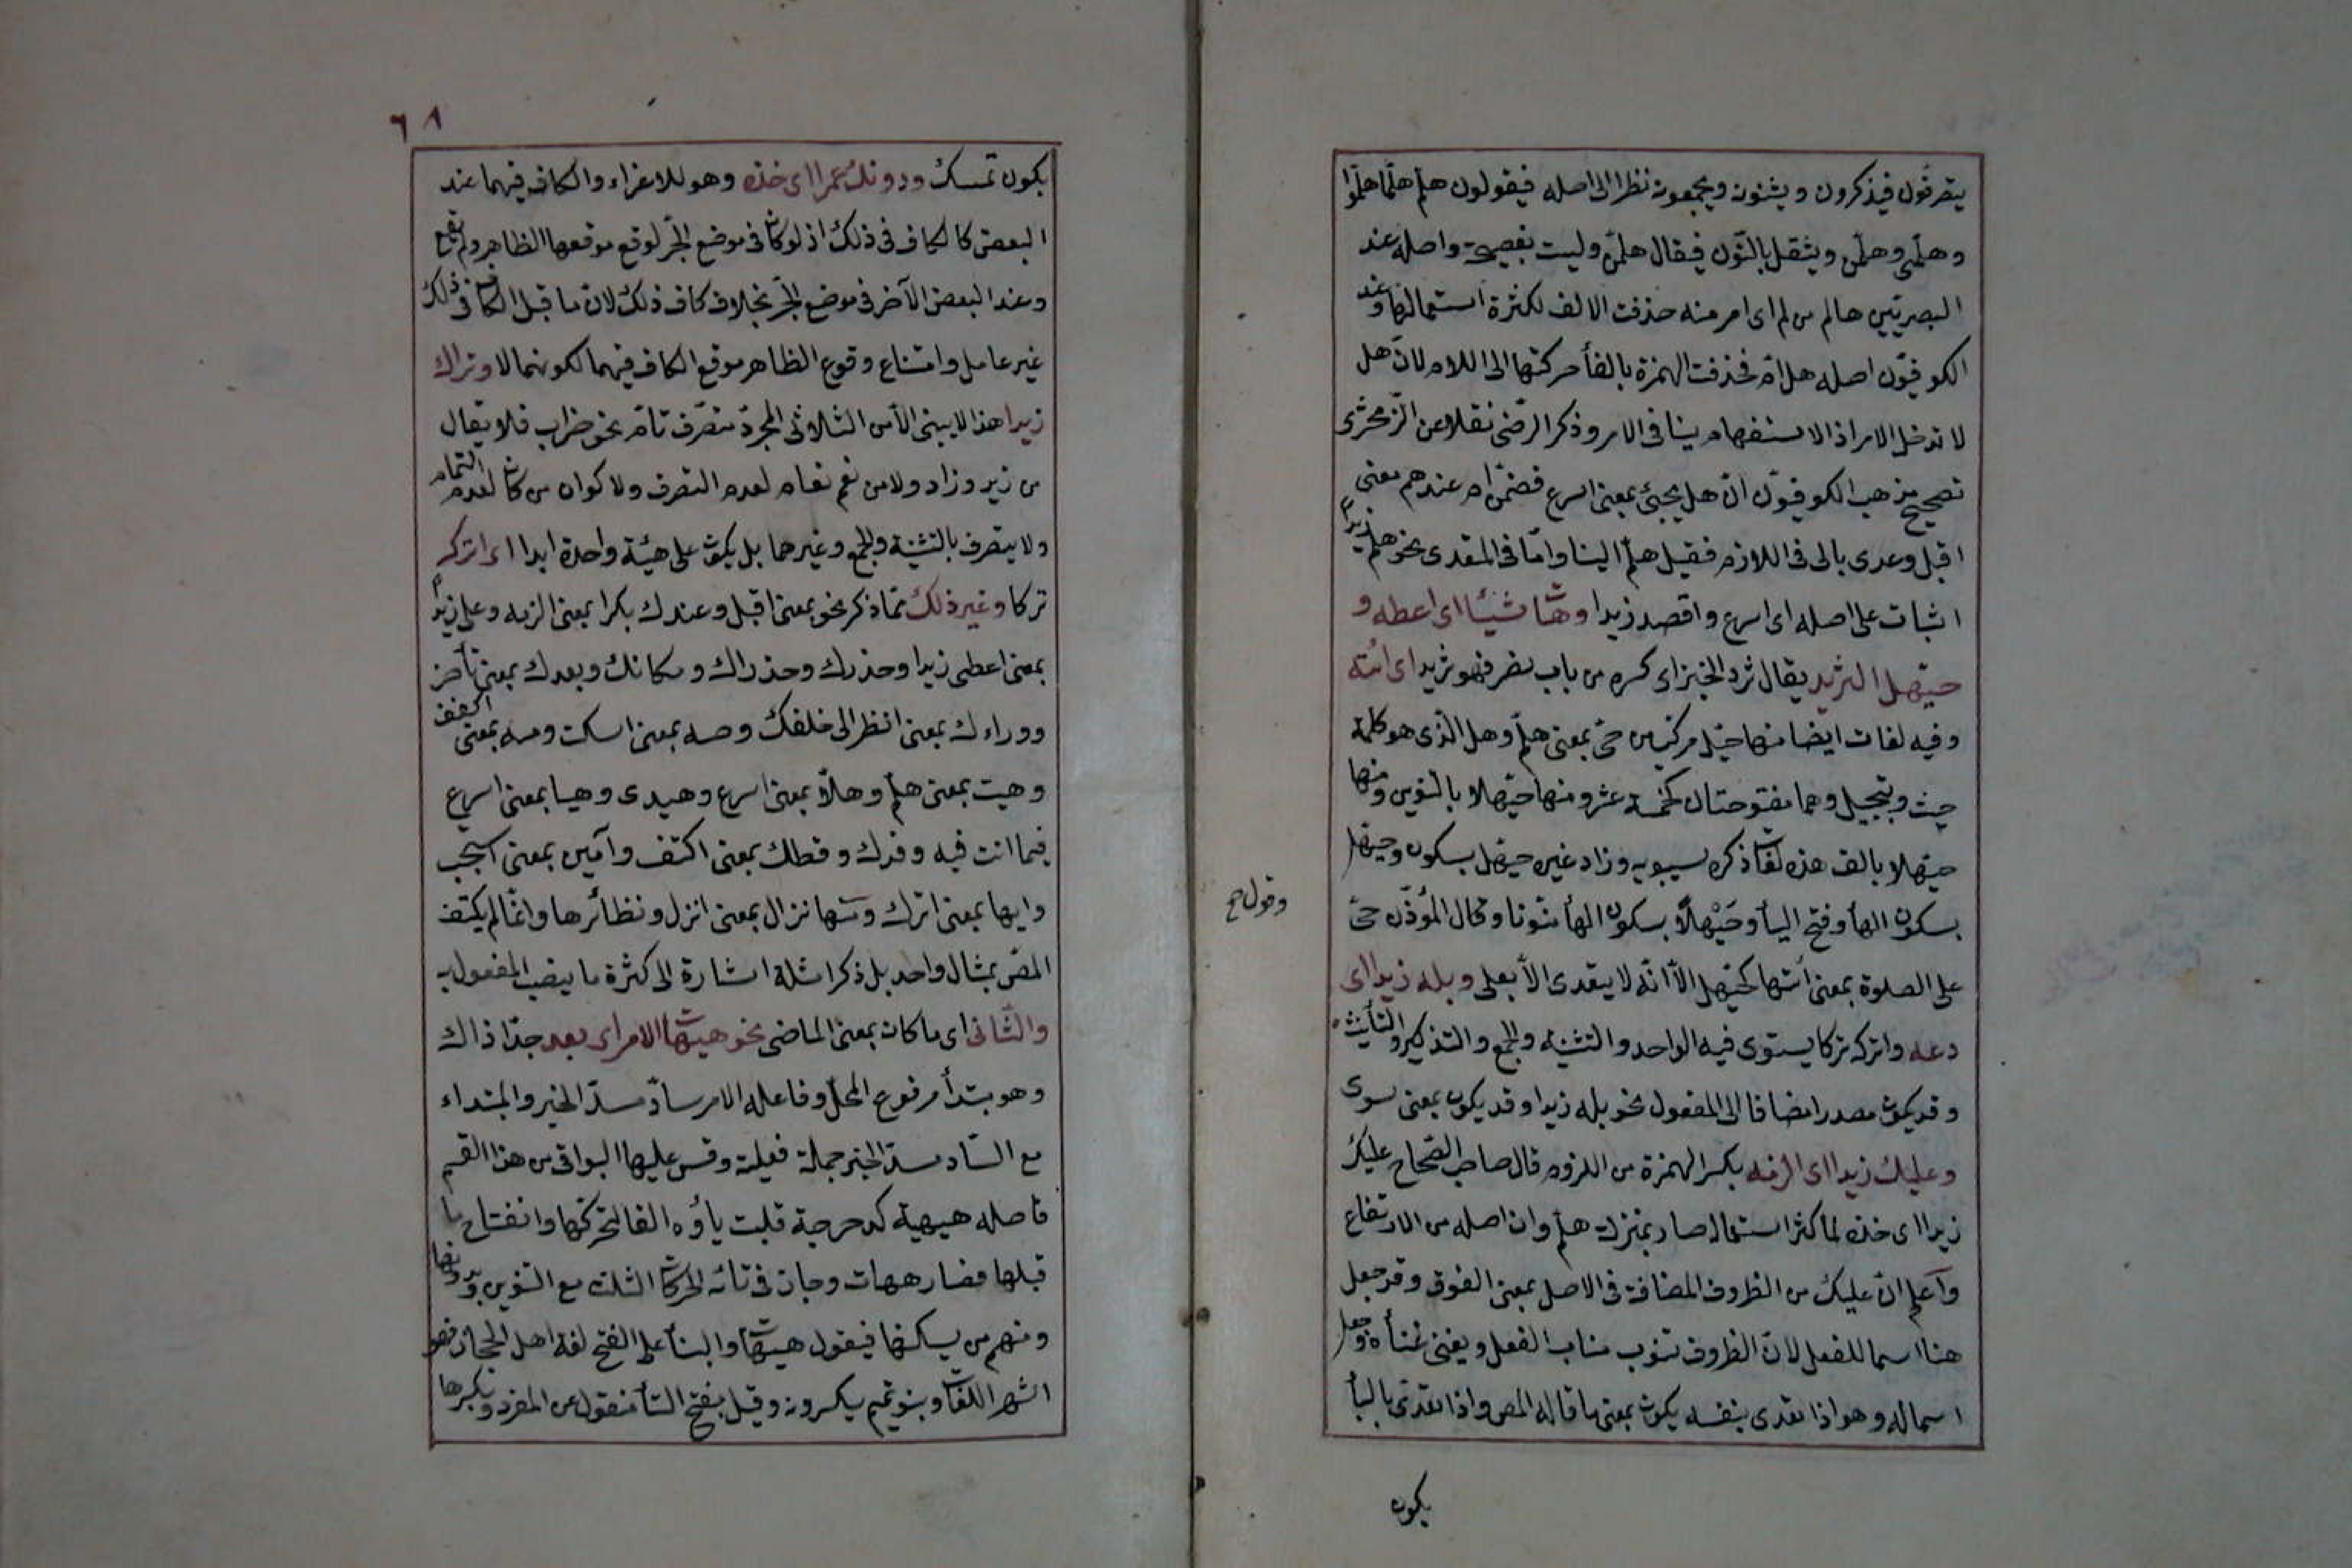 يتصرفون فيذكرون ويثنون ويجمعون نظرا الى اصله فيقولون هلمّ هلمّا هلمّوا
وهلمّى وهلمّن ويثقل بالنّون فيقال هلمّنّ وليست بفصيحة واصله عند
البصريّين هالم من لم اى امر منه حذفت الالف لكثرة استعمالها وعند
الكوفيّون اصله هل امّ فحذفت الهمزة بالقأ حركتها الى اللام لانّ هل
لا تدخل الامر اذ الاستفهام ينافى الامر وذكر الرّضى نقلا عن الزّمخشرى
تصحيح مذهب الكوفيّون انّ هل يجئ بمعنى اسرع فضمّن ام عندهم معنى
اقبل وعدى بالى فى اللازم فقيل هلمّ الينا وامّا فى المتعدى نحو هلمّ زيدا
اثبات على اصله اى اسرع واقصد زيدا وهات شيئا اى اعطه و
حيّهل الثريد يقال ثرد الخبز اى كسره من باب نصر فهو ثريد اى ائته
وفيه لغات ايضا منها حيّهل مركّب من حىّ بمعنى هلمّ وهل الّذى هو كلمة
حثّ وتعجيل وهما مفتوحتان كخمسة عشر ومنها حيّهلا بالتنوين ومنها
حيّهلا بالف هذه لغات ذكره سيبويه وزاد غيره حيّهل بسكون وحيهل
بسكون الهأ وفتح اليأ وحَيْهلًا بسكون الهأ منوّنا وقال المؤذّن حىّ
وقول ح
على الصلوة بمعنى ائتها كحيّهل الّا انّه لا يتعدى الّا بعلى وبله زيدا اى
دعه واتركه تركا يستوى فيه الواحد والتثنية والجمع والتذكير والتأنيث
وقد يكون مصدرا مضافا الى المفعول نحو بله زيدا وقد يكون بمعنى سوى
وعليك زيدا اى الزمه بكسر الهمزة من اللزوم قال صاحب الصّحاح عليك
زيدا اى خذه لما كثر استعماله صار بمنزلة هلمّ وان اصله من الارتفاع
واعلم انّ عليك من الظروف المضافة فى الاصل بمعنى الفوق وقد جعل
هنا اسما للفعل لانّ الظروف تنوب مناب الفعل ويغنى غنأه وجعل
اسما له وهو اذا تعدى بنفسه يكون بمعنى ما قاله المص واذا تعدّى بالبأ
يكون
٦٨
يكون تمسك ودونك عمرا اى خذه وهو للاغراء والكاف فيهما عند
البعض كالكاف فى ذلك اذ لو كان فى موضع الجرّ لوقع موقعها الظاهر ولم يقع
وعند البعض الآخر فى موضع الجرّ بخلاف كاف ذلك لان ما قبل الكاف فى ذلك
غير عامل وامتناع وقوع الظاهر موقع الكاف فيهما لكونهما لا وتراك
زيدا هذا لا يبنى الّا من الثلاثى المجرد متصرّف تامّ نحو ضراب فلا يقال
من زيد وزاد ولا من نعم نعام لعدم التصرف ولا كوان من كان لعدم التمام
ولا يتصرف بالتثنية والجمع وغيرهما بل يكون على هيئة واحدة ابدا اى اتركه
تركا وغير ذلك ممّا ذكر نحو بمعنى اقبل وعندك بكرا بمعنى الزمه وعلى زيدا
بمعنى اعطى زيدا وحذرك وحذراك ومكانك وبعدك بمعنى تأخر
ووراءك بمعنى انظر الى خلفك وصه بمعنى اسكت ومه بمعنى اكفف
وهيت بمعنى هلمّ وهلّا بمعنى اسرع وهيدى وهيا بمعنى اسرع
فيما انت فيه وقدك وقطك بمعنى اكتف وآمين بمعنى استجب
وايها بمعنى اترك ومنها نزال بمعنى انزل ونظائرها وانّما لم يكتف
المص بمثال واحد بل ذكر امثلة اشارة الى كثرة ما ينصب المفعول به
والثّانى اى ما كان بمعنى الماضى نحو هيهات الامر اى بعد جدّا ذاك
وهو مبتدأ مرفوع المحلّ وفاعله الامر سادّ مسدّ الخبر والمبتداء
مع السّاد مسدّ الخبر جملة فعلية وقس عليها البواقى من هذا القسم
فاصله هيهية كدحرجة قلبت ياؤه الفا لتحركها وانفتاح ما
قبلها فصار هيهات وجاز فى تائه الحركات الثلث مع التنوين وبدونها
ومنهم من يسكنها فيقول هيهات والبنأ على الفتح لغة اهل الحجاز فهو
اشهر اللغات وبنو تميم يكسرونه وقيل بفتح التأ منقول عن المفرد وبكسرها